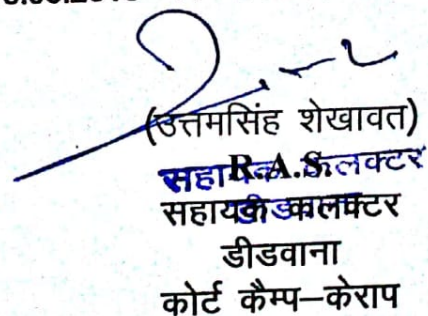 (उत्तमसिंह शेखावत)
R.A.S.
सहायक कलक्टर
सहायक कलक्टर
डीडवाना
कोर्ट कैम्प–केराप